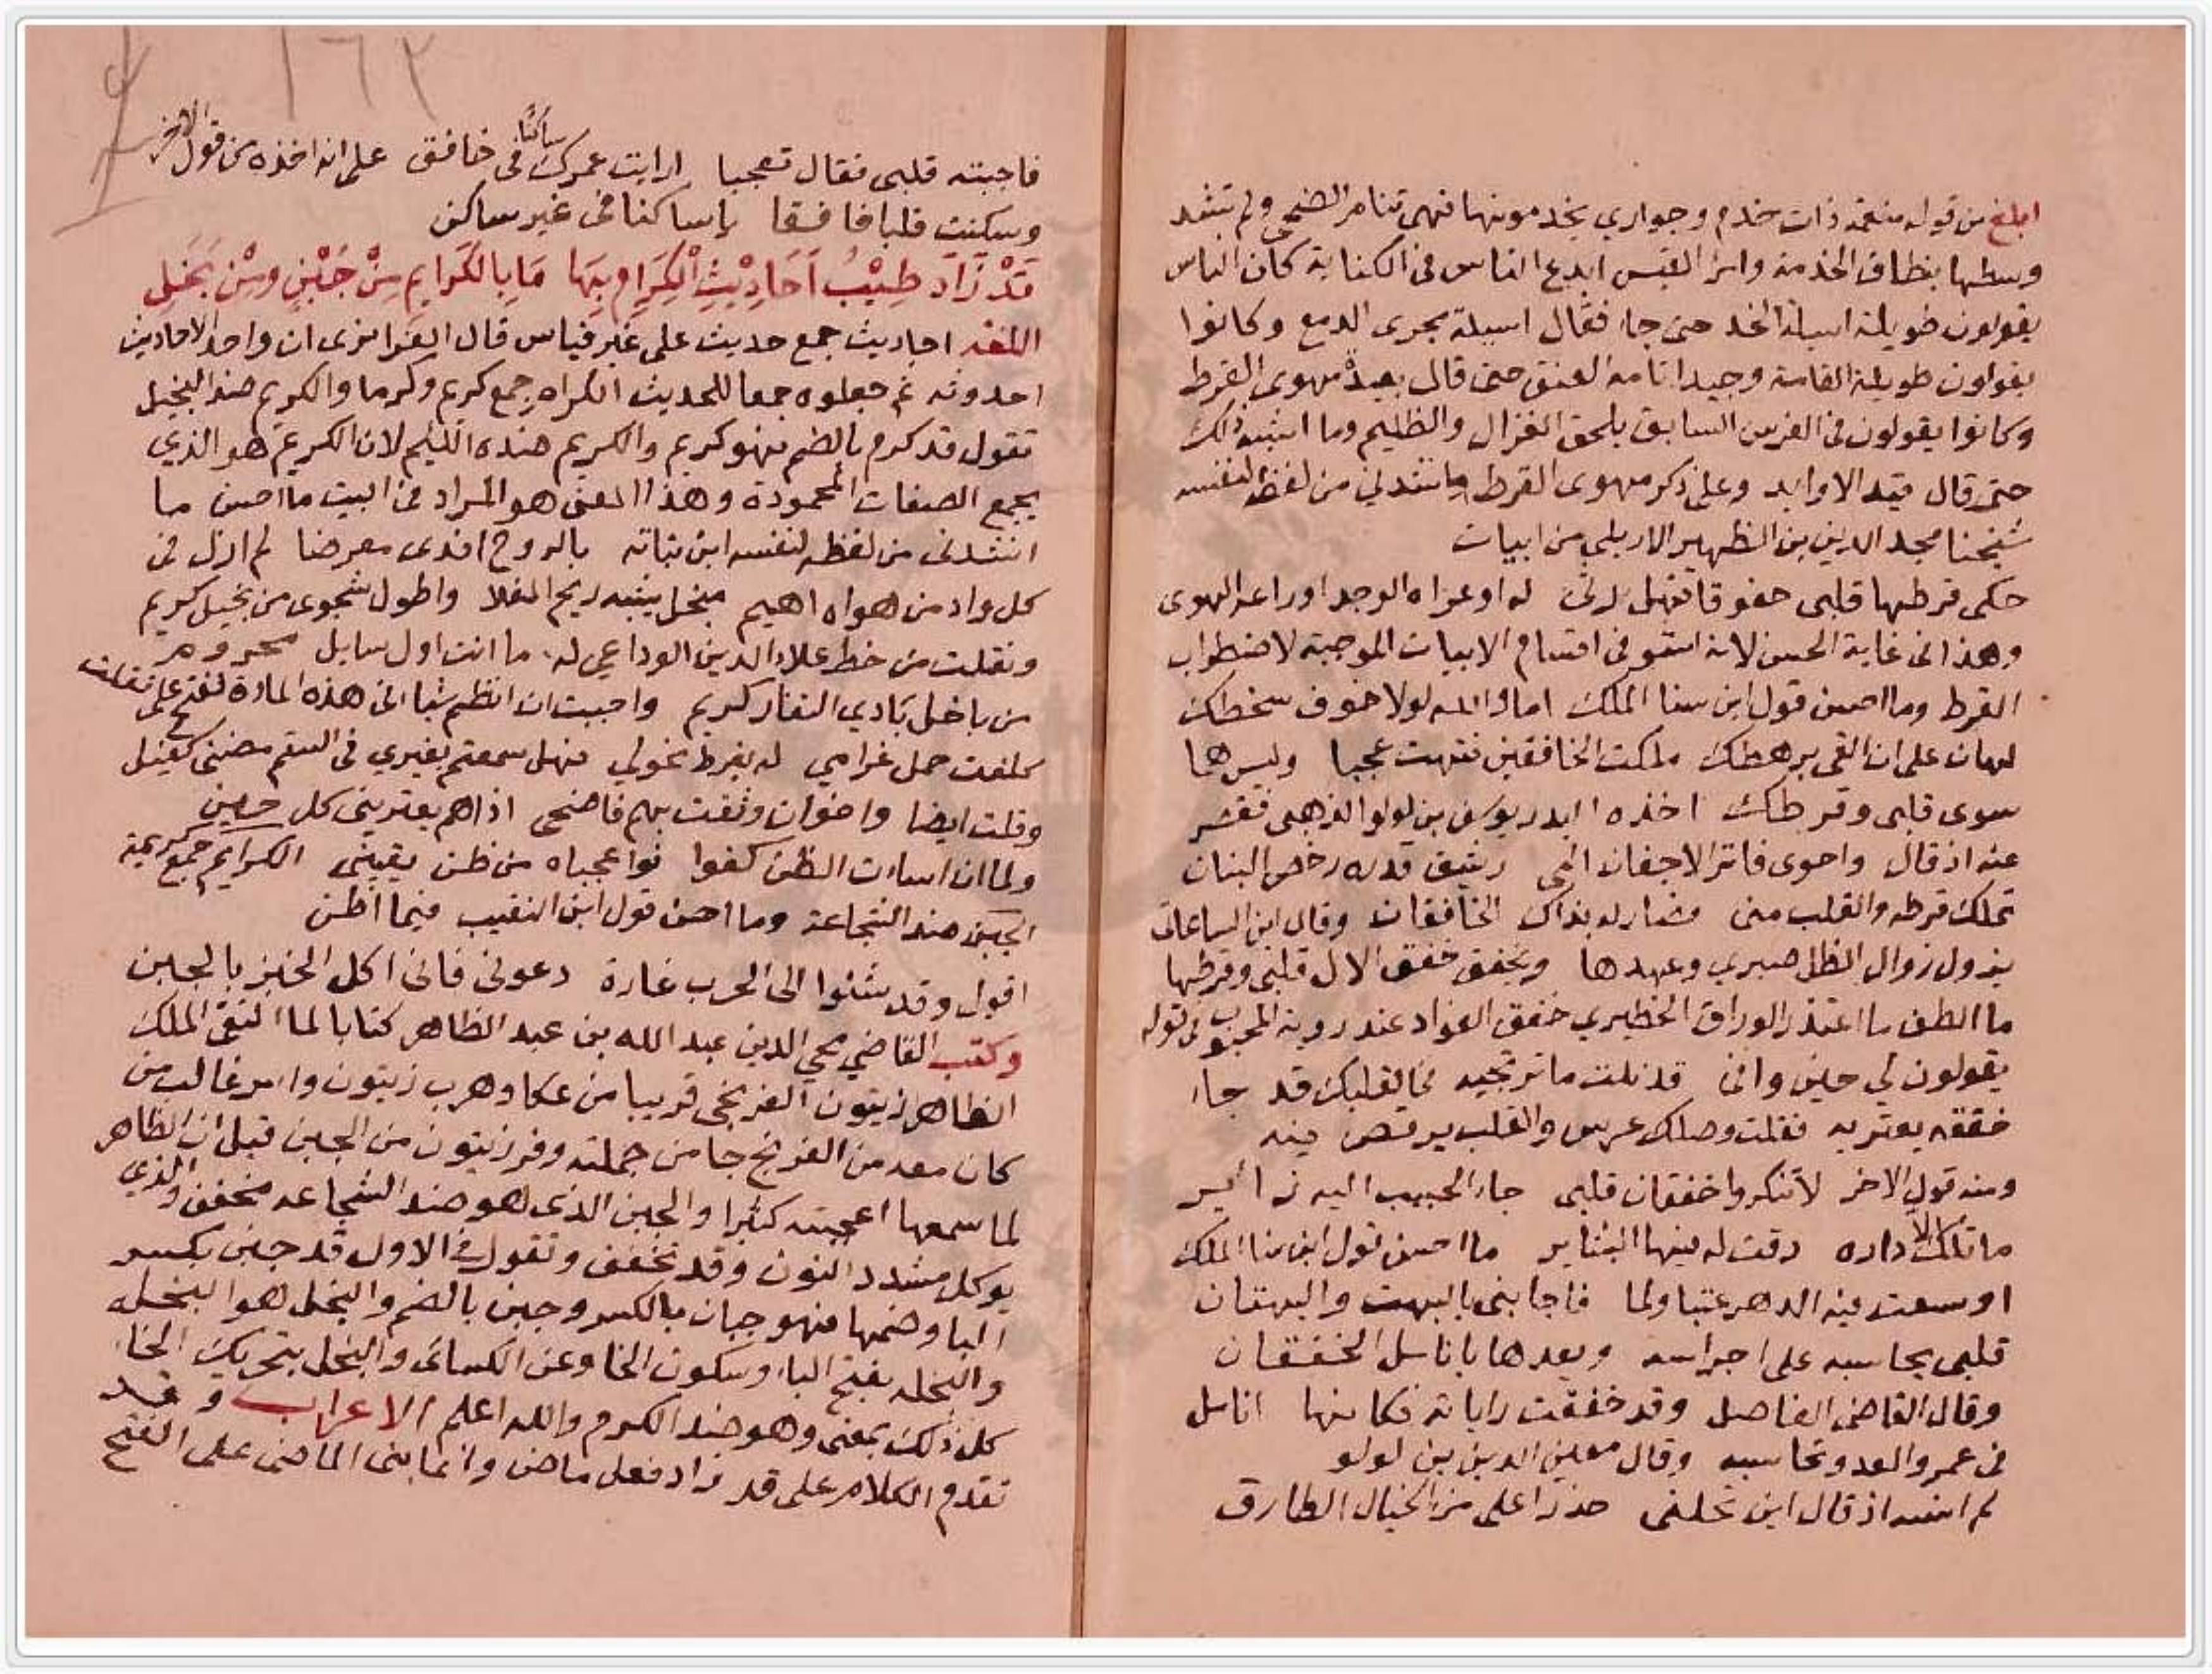 ابلغ من قوله منعمة ذات خدم وجواري يخدمونها فهي تنام الضحى ولم تشد
وسطها بنطاق الخدمة وامرا القيس ابدع الناس في الكناية كان الناس
يقولون طويلة اسيلة الخد حتى جا فقال اسيلة مجرى الدمع وكانوا
يقولون طويلة القامة وجيدا تامة العنق حتى قال بعيدة مهوى القرط
وكانوا يقولون في الفرس السابق يلحق الغزال والظليم وما اشبه ذلك
حتى قال قيد الاوابد وعلى ذكر مهوى القرط ما نشدني من لفظه لنفسه
شيخنا مجد الدين بن الظهير الاربلي من ابيات
حكى قرطها قلبى خفوقا فهل لدى له او عراه الوجد او راعه الهوى
وهذا في غاية الحسن لانه استوفى اقسام الابيات الموجبة لاضطراب
القرط وما احسن قول ابن سنا الملك اما والله لولا خوف سخطك
لهان على ان القى برهطك ملكت الخافقين فتهت عجبا وليس هما
سوى قلبى وقرطك اخذه ابدر يوسف بن لولو الذهبى فقصر
عنه اذ قال واحوى فاتر الاجفان المى رشيق قده رخص البنان
تملك قرطه والقلب منى فصار له بذاك الخافقان وقال ابن الساعاتى
يزول زوال الظل صبري وعهدها ويخفق خفق الال قلبي وقرطها
ما الطف ما اعتذر الوراق الحظيري خفق الفواد عند روية المحبوب في قوله
يقولون لي حين وافى قد نلت ما ترتجيه فما لقلبك قد جا
خفقة يعتريه فقلت وصلك عرس والقلب يرقص فيه
ومنه قول الاخر لا تنكروا خفقان قلبى جاء الحبيب اليه زاير
ما تلك الا داره دقت له فيها البشاير ما احسن قول ابن سنا الملك
اوسعت فيه الدهر عتبا ولما فاجابنى بالبهت والبهتان
قلبى يحاسبه على اجرامه ويعدها بانامل الخفقان
وقال القاضى الفاضل وقد خفقت راياته فكانها انامل
في عمر والعدو تحاسبه وقال معين الدين بن لولو
لم انسه اذ قال اين تحلنى حذرا على من الخيال الطارق
فاجبته قلبى فقال تعجبا ارايت عمرك ساكنا في خافق على انه اخذه من قول الاخر
وسكنت قلبا خافقا ياساكنا في غير ساكن
قَدْ زَادَ طِيْبُ اَحَادِيْثِ الْكِرَامِ بِهَا مَا بِالْكَرَايِمِ مِنْ جُبْنٍ وَمِنْ بَخَلِ
اللغة احاديث جمع حديث على غير قياس قال الفرا نرى ان واحد الاحاديث
احدوثه ثم جعلوه جمعا للحديث الكرام جمع كريم وكرما والكريم ضد البخيل
تقول قد كرم بالضم فهو كريم والكريم ضده اللئيم لان الكريم هو الذي
يجمع الصفات المحمودة وهذا المعنى هو المراد في البيت ما احسن ما
انشدنى من لفظه لنفسه ابن نباته بالروح افدى معرضا لم ازل في
كل واد من هواه اهيم بنحل يشبه ريح الفلا واطول شجوى من بخيل كريم
ونقلت من خط علاء الدين الوداعي له ما انت اول سايل محروم
من باخل بادي النفار كريم واحببت ان انظم شيا في هذه المادة لنفسى على فقلت
كلفت حمل غرامي له بفرط نحولي فهل سمعتم بغيري في السقم مضنى كفيل
وقلت ايضا واخوان وثقت بهم فاضحى اذاهم يعتريني كل حين
ولما ان اسات الظن كفوا فواعجباه من ظن يقينى الكرايم جمع كريمة
الجبن ضد الشجاعة وما احسن قول ابن النقيب فيما اظن
اقول وقد شنوا الى الحرب غارة دعونى فانى اكل الخبز بالجبن
وكتب القاضي محي الدين عبد الله بن عبد الظاهر كتابا لما التقى الملك
الظاهر زيتون الفرنجى قريبا من عكا وهرب زيتون واسر غالب من
كان معه من الفرنج جا من جملته وفر زيتون من الجبن قيل ان الظاهر
لما سمعها اعجبته كثيرا والجبن الذى هو ضد الشجاعه مخفف والذي
يوكل مشدد النون وقد تخفف وتقول في الاول قد جبن بكسر
البا وضمها فهو جبان بالكسر وجبن بالضم والبخل هو البخله
والبخله بفتح الباء وسكون الخا وعن الكسائى والبخل بتحريك الخا
كل ذلك بمعنى وهو ضد الكرم والله اعلم الاعراب وقد
تقدم الكلام على قد زاد فعل ماض وانما بنى الماضى على الفتح